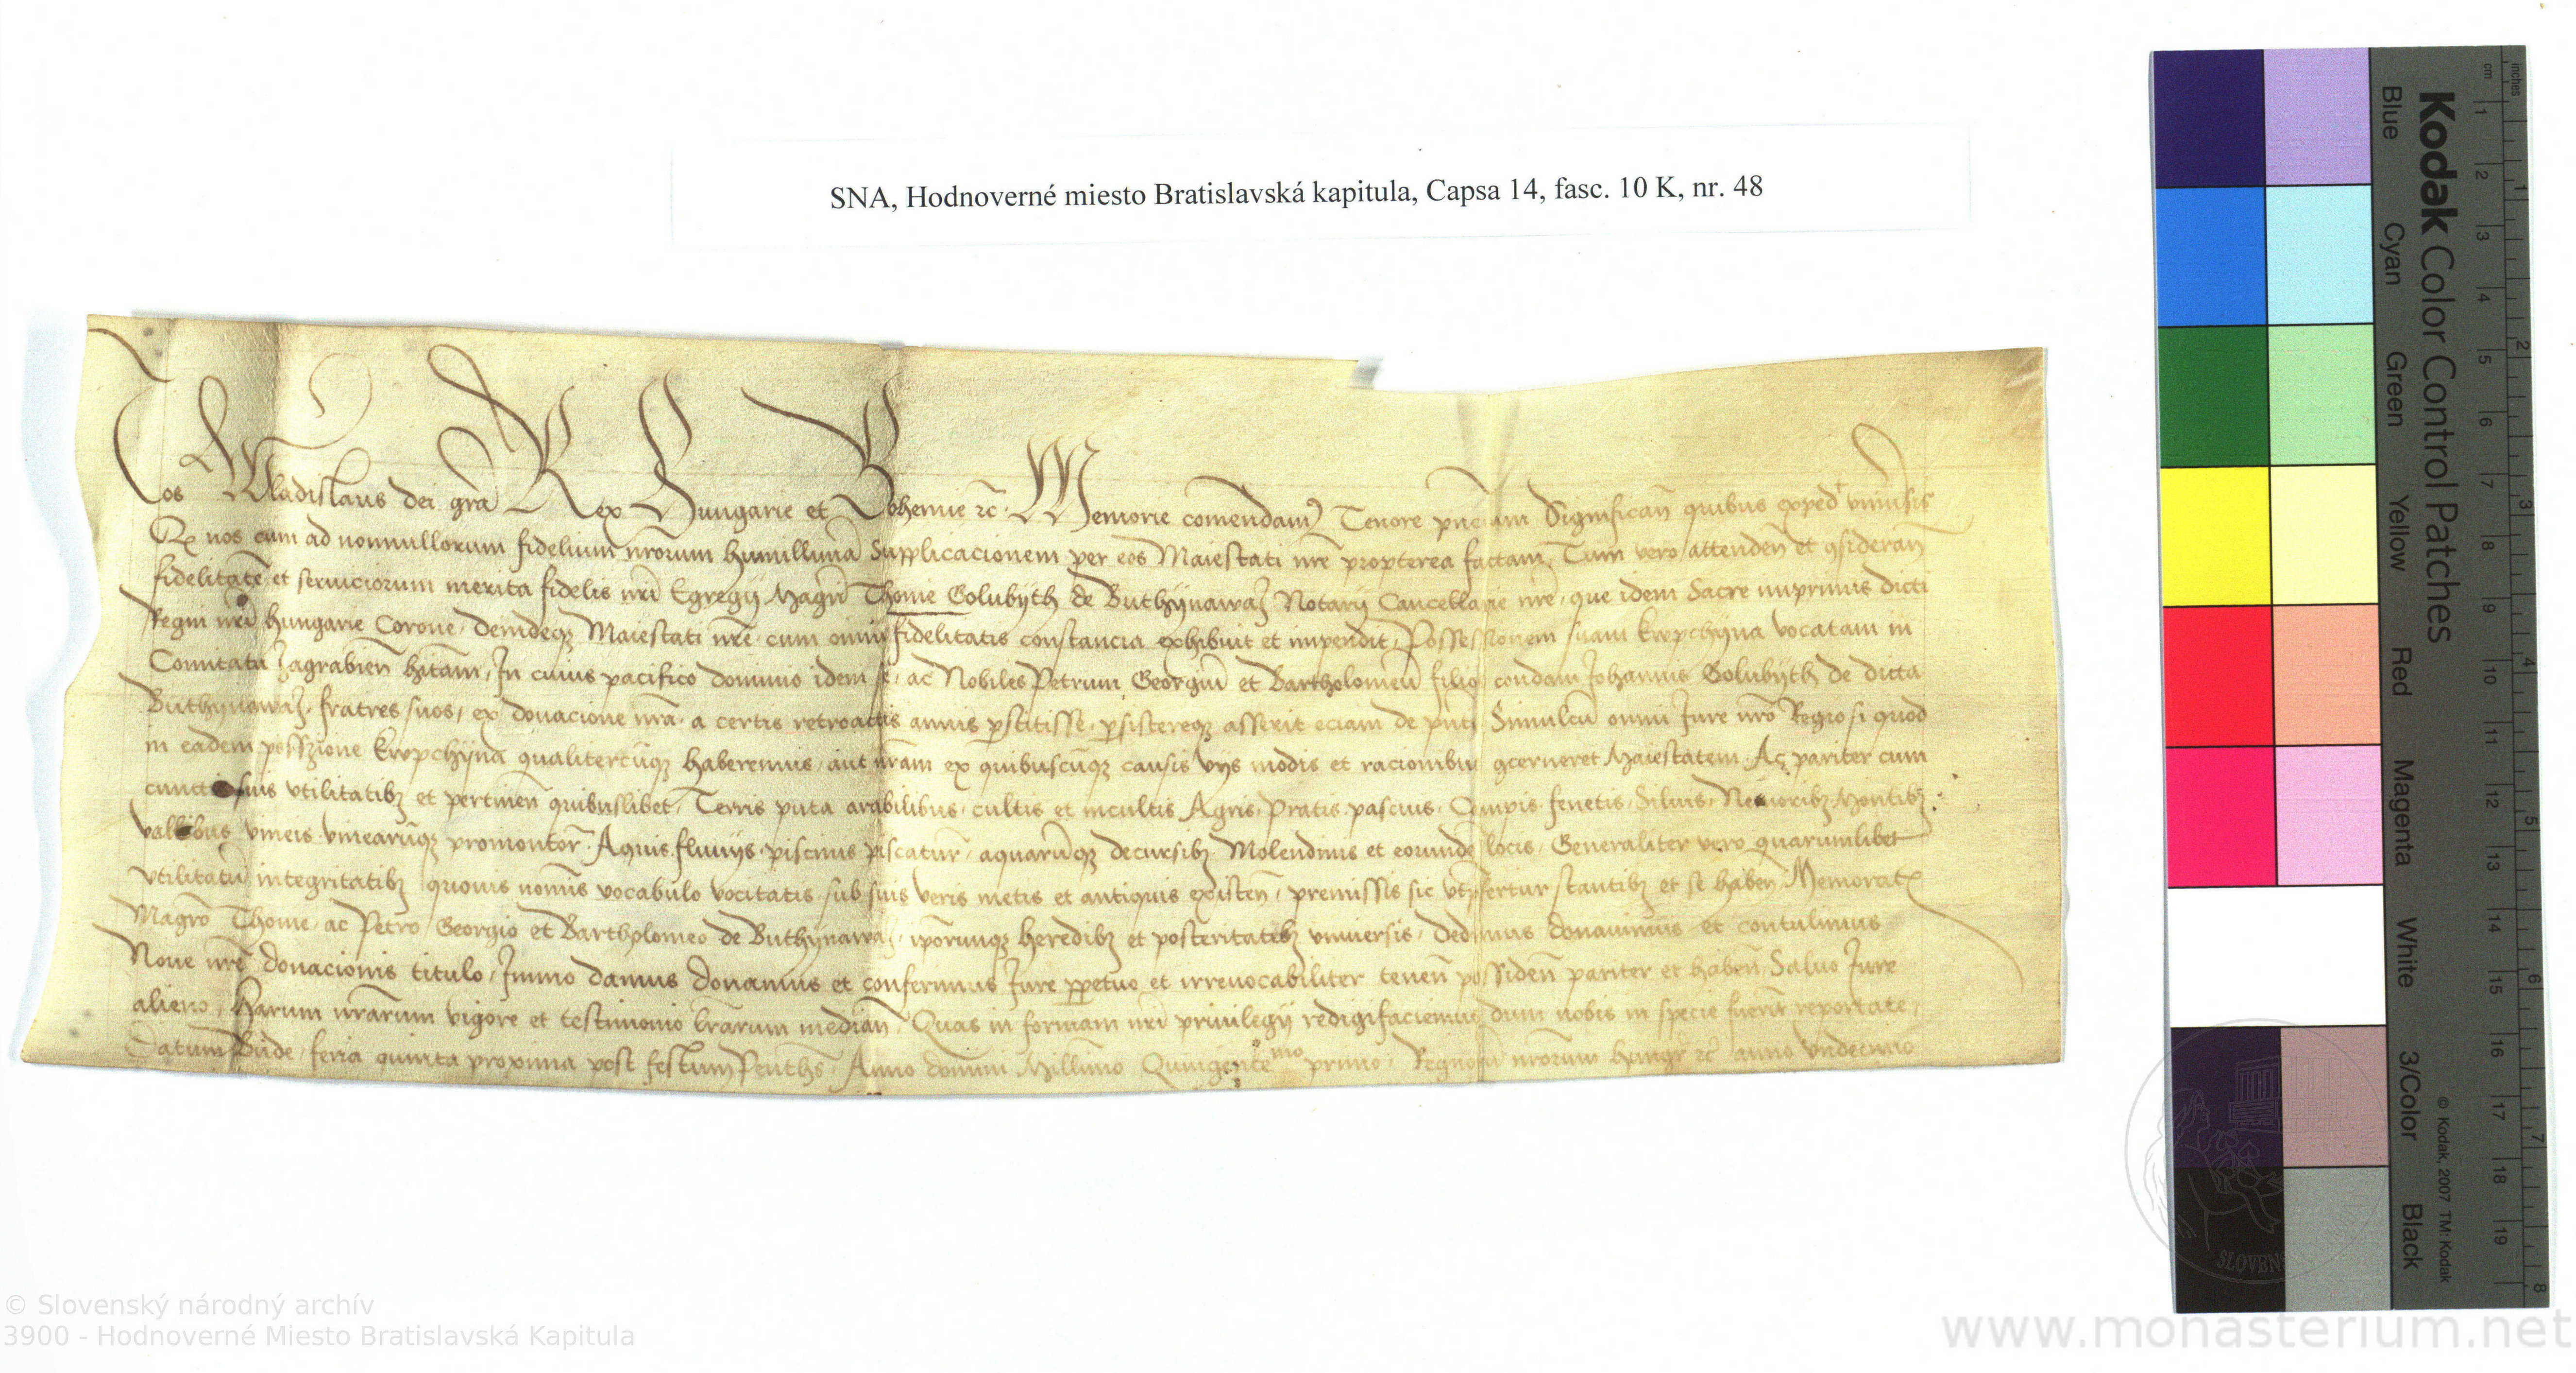 SNA, Hodnoverné miesto Bratislavská kapitula, Capsa 14, fasc. 10 K, nr. 48
Nos Wladislaus dei gr̄a Rex Hungarie et Bohemie rc̄. Memorie comendam Tenore pn̄cium Significan̄ quibus exped' vniuˀsis
Q nos cum ad nonnullorum fidelium nr̄orum humillimā Supplicacionem per eos Maiestati nr̄e propterea factam, Tum vero attenden̄ et ꝯsideran̄
fidelitatē et seruiciorum merita fidelis nr̄i Egregij Magr̄i Thome Golubyth de Buthynawaz Notarij Cancellarie nr̄e, que idem Sacre inprimis dicti
Regni nr̄i hungarie Corone, demdeqꝫ Maiestati nr̄e cum omni fidelitatis constancia exhibuit et impendit, Possessionem suam kropchyna vocatam in
Comitatu Zagrabien̄ hitam, In cuius pacifico dominio idem se, ac Nobiles Petrum Georgiū et Bartholomeū filios condam Johannis Golubyth de dicta
Buthynawaz fratres suos, ex donacione nr̄a a certis retroactis annis ꝑstitisse, ꝑsistereqꝫ asserit eciam de pn̄ti Simulcū omni Jure nr̄o Regio si quod
in eadem possessione kropchyna qualitercūqꝫ haberemus, aut nr̄am ex quibuscūqꝫ causis vijs modis et racionibus ꝯcerneret Maiestatem. Ac pariter cum
cunctis suis vtilitatibꝫ et pertinen̄ quibuslibet, Terris puta arabilibus, cultis et incultis Agris, pratis, pascuis, Campis fenetis, Siluis, Nemoribꝫ Montibꝫ
vallibus vineis vinearūqꝫ promontor̄. Aquis fluuijs, piscinis piscatur̄, aquarūqꝫ decursibꝫ Molendinis et eorundē locis, Generaliter vero quarumlibet
vtilitatū integritatibꝫ quouis nominis vocabulo vocitatis, sub suis veris metis et antiquis existen̄, premissis sic vtp̄fertur stantibꝫ et se haben̄ Memorato
Magr̄o Thome, ac Petro Georgio et Bartholomeo de Buthynawaz, ip̄orumqꝫ heredibꝫ et posteritatibꝫ vniuersis, Dedimus donauimus et contulimus
Noue nr̄e donacionis titulo, Immo damus donamus et conferimus Jure ꝑpetuo et irreuocabiliter tenen̄ possiden̄ pariter et haben̄, Saluo Jure
alieno, Harum nr̄arum vigore et testimonio lr̄arum median̄, Quas in formam nr̄i priuilegij redigifaciemus dum nobis in specie fuerīt reportate,
Datum Bude, feria quinta proxima post festum Penthē, Anno domini Millīmo Quingentemo primo, Regnorū nr̄orum hungr̄ rc̄ anno vndecimo
Kodak Color Control Patches
Blue Cyan Green Yellow Red Magenta White 3/Color Black
inches cm
1 2 3 4 5 6 7 8 9 10 11 12 13 14 15 16 17 18 19
1 2 3 4 5 6 7 8
© Kodak, 2007 TM: Kodak
SLOVENS
© Slovenský národný archív
3900 - Hodnoverné Miesto Bratislavská Kapitula
www.monasterium.net